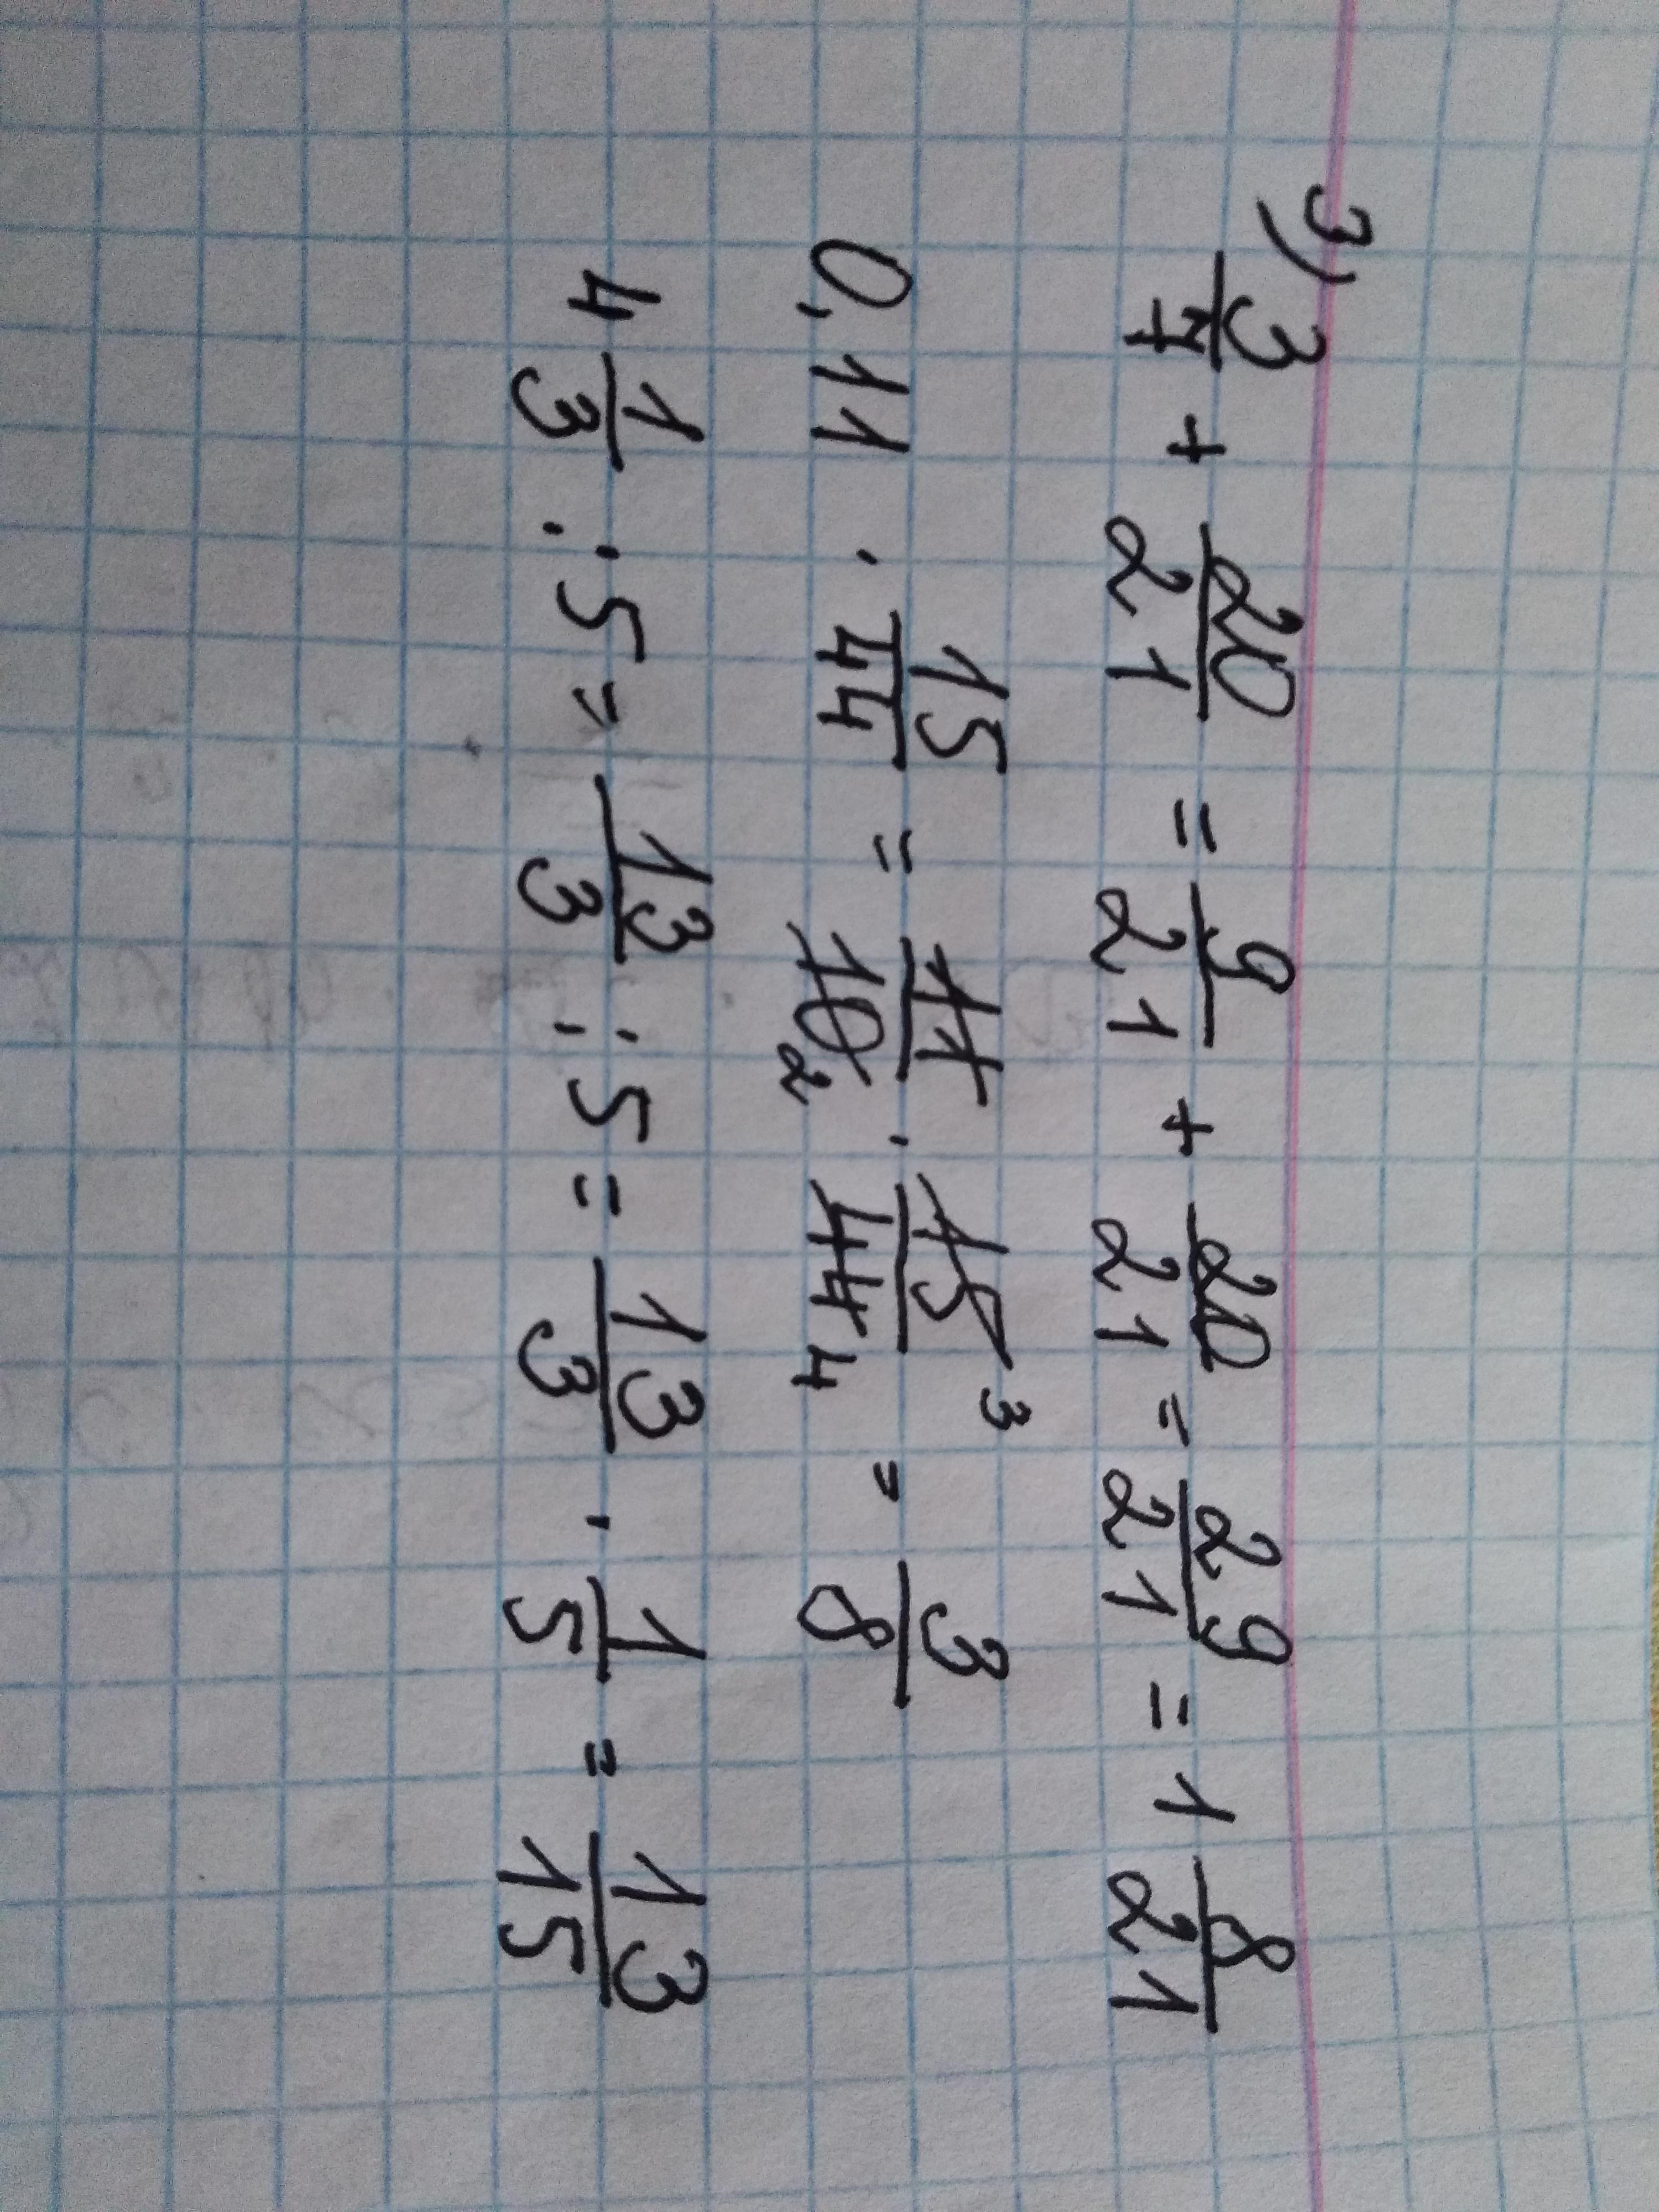 3)
3/7 + 20/21 = 9/21 + 20/21 = 29/21 = 1 8/21
0,11 · 15/44 = 11/10 2 · 15 3/44 4 = 3/8
4 1/3 : 5 = 13/3 : 5 = 13/3 · 1/5 = 13/15